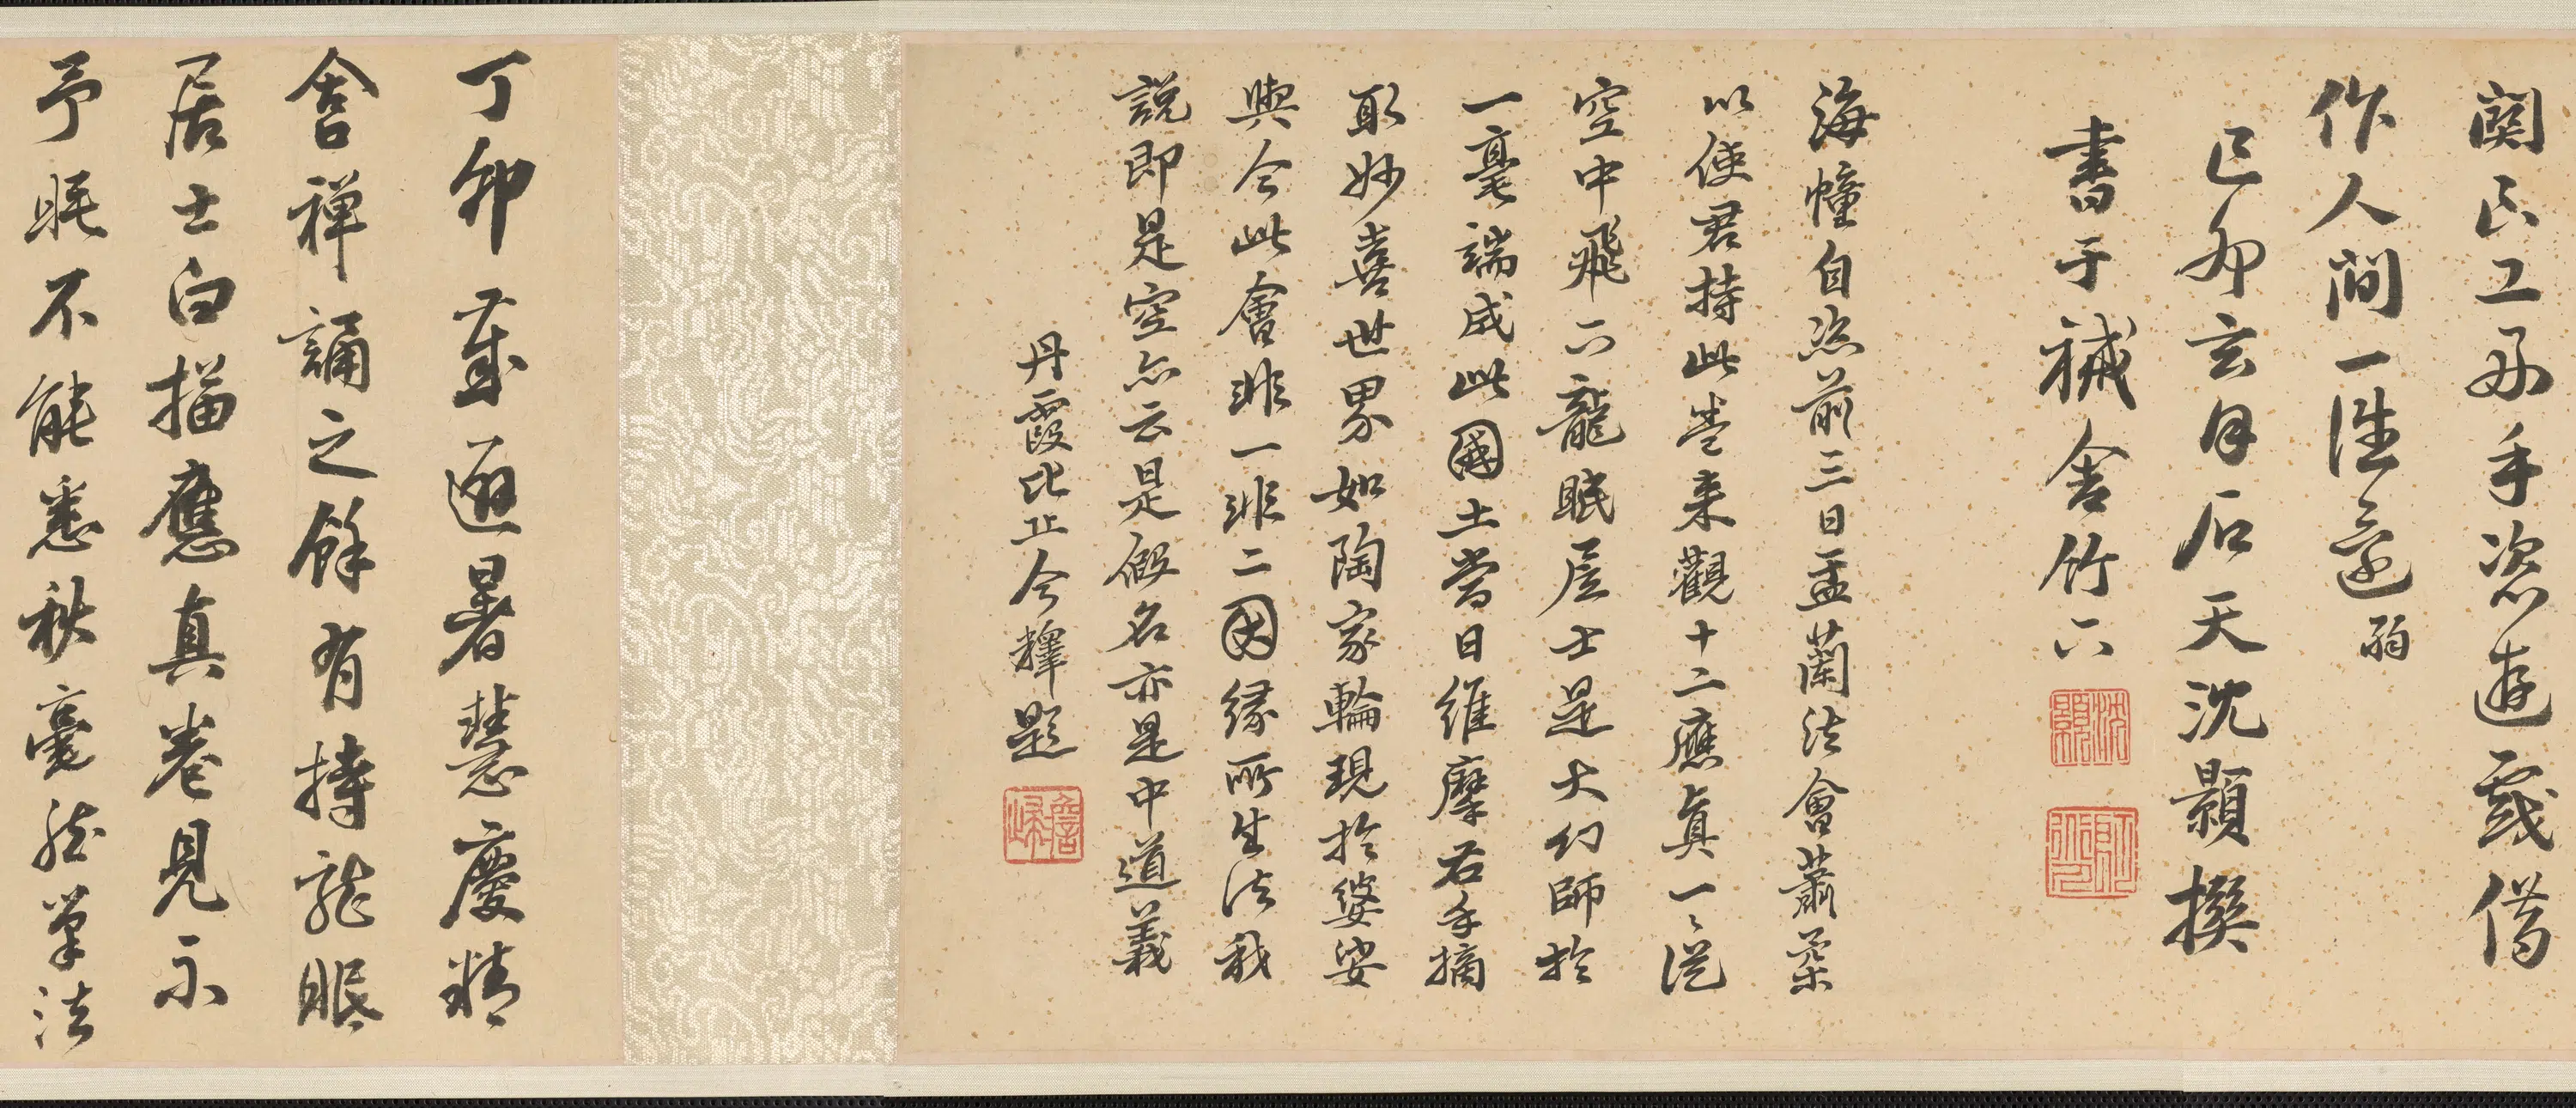 関正工好手恣遊戲借
作人間一洼逕弱
己卯玄月后天沈顥撰
書于祴舍竹下
沈顥
海幢自恣前三日盂蘭法會蕭孟
以使君持此卷来觀十二應真一々從
空中飛下龍眠居士是大幻師於
一毫端成此國土當日維摩右手摘
取妙喜世界如陶家輪現於娑婆
與今此會非一非二因緣所生法我
説即是空亦云是假名亦是中道義
丹霞比丘今釋題
澹歸
丁卯夏避暑慧慶精
舍禅誦之餘有持龍眠
居士白描應真卷見示
予眊不能悉秋毫然筆法